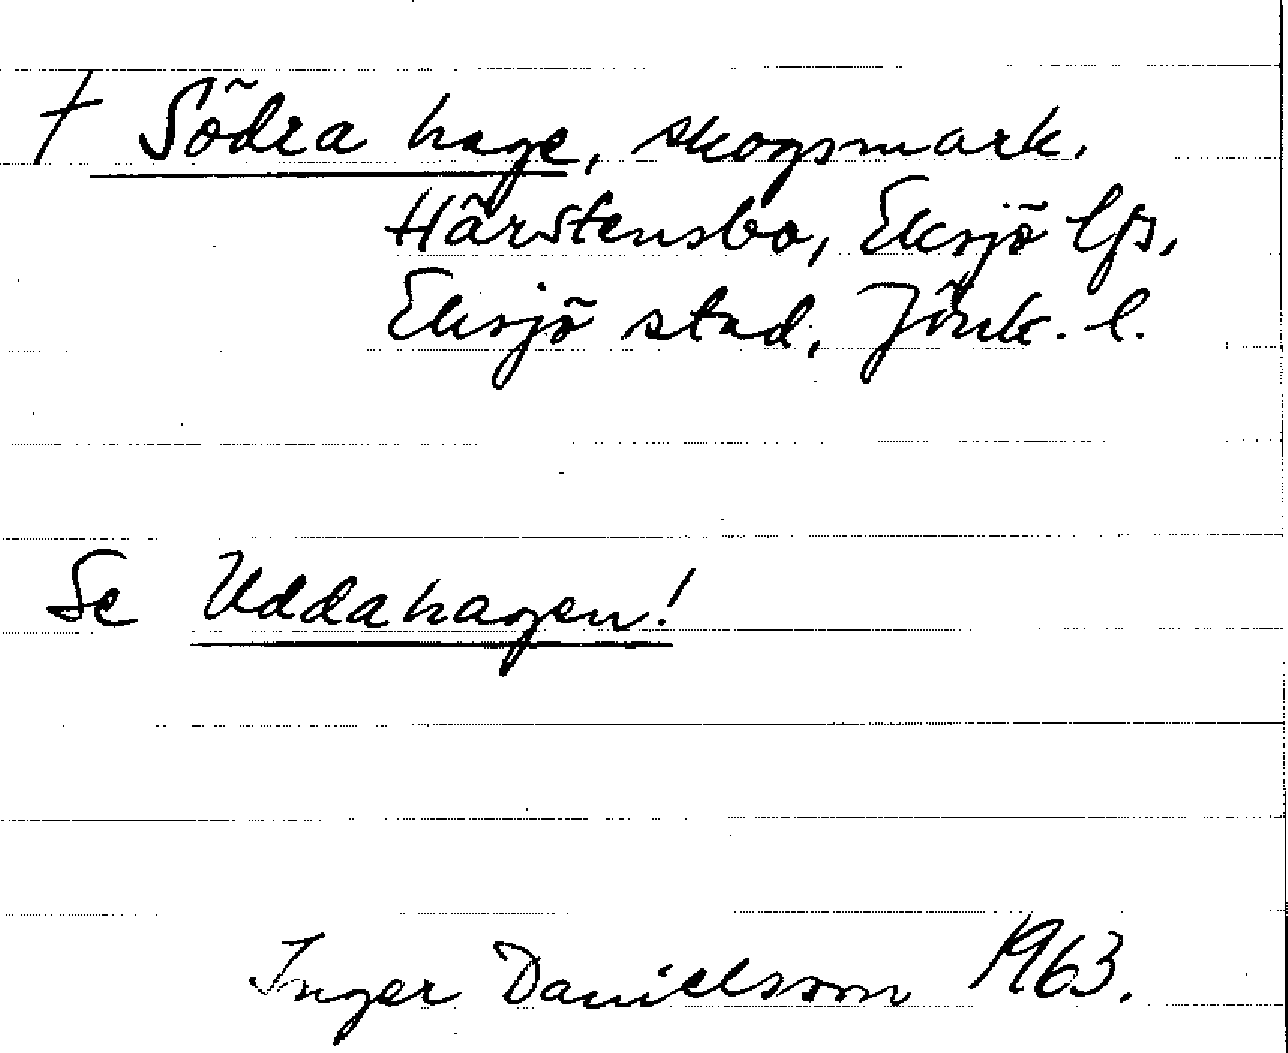 † Södra hage, skogsmark.
Härstensbo, Eksjö lfs,
Eksjö stad, Jönk. l.
Se Uddahagen!
Inger Danielsson 1963.